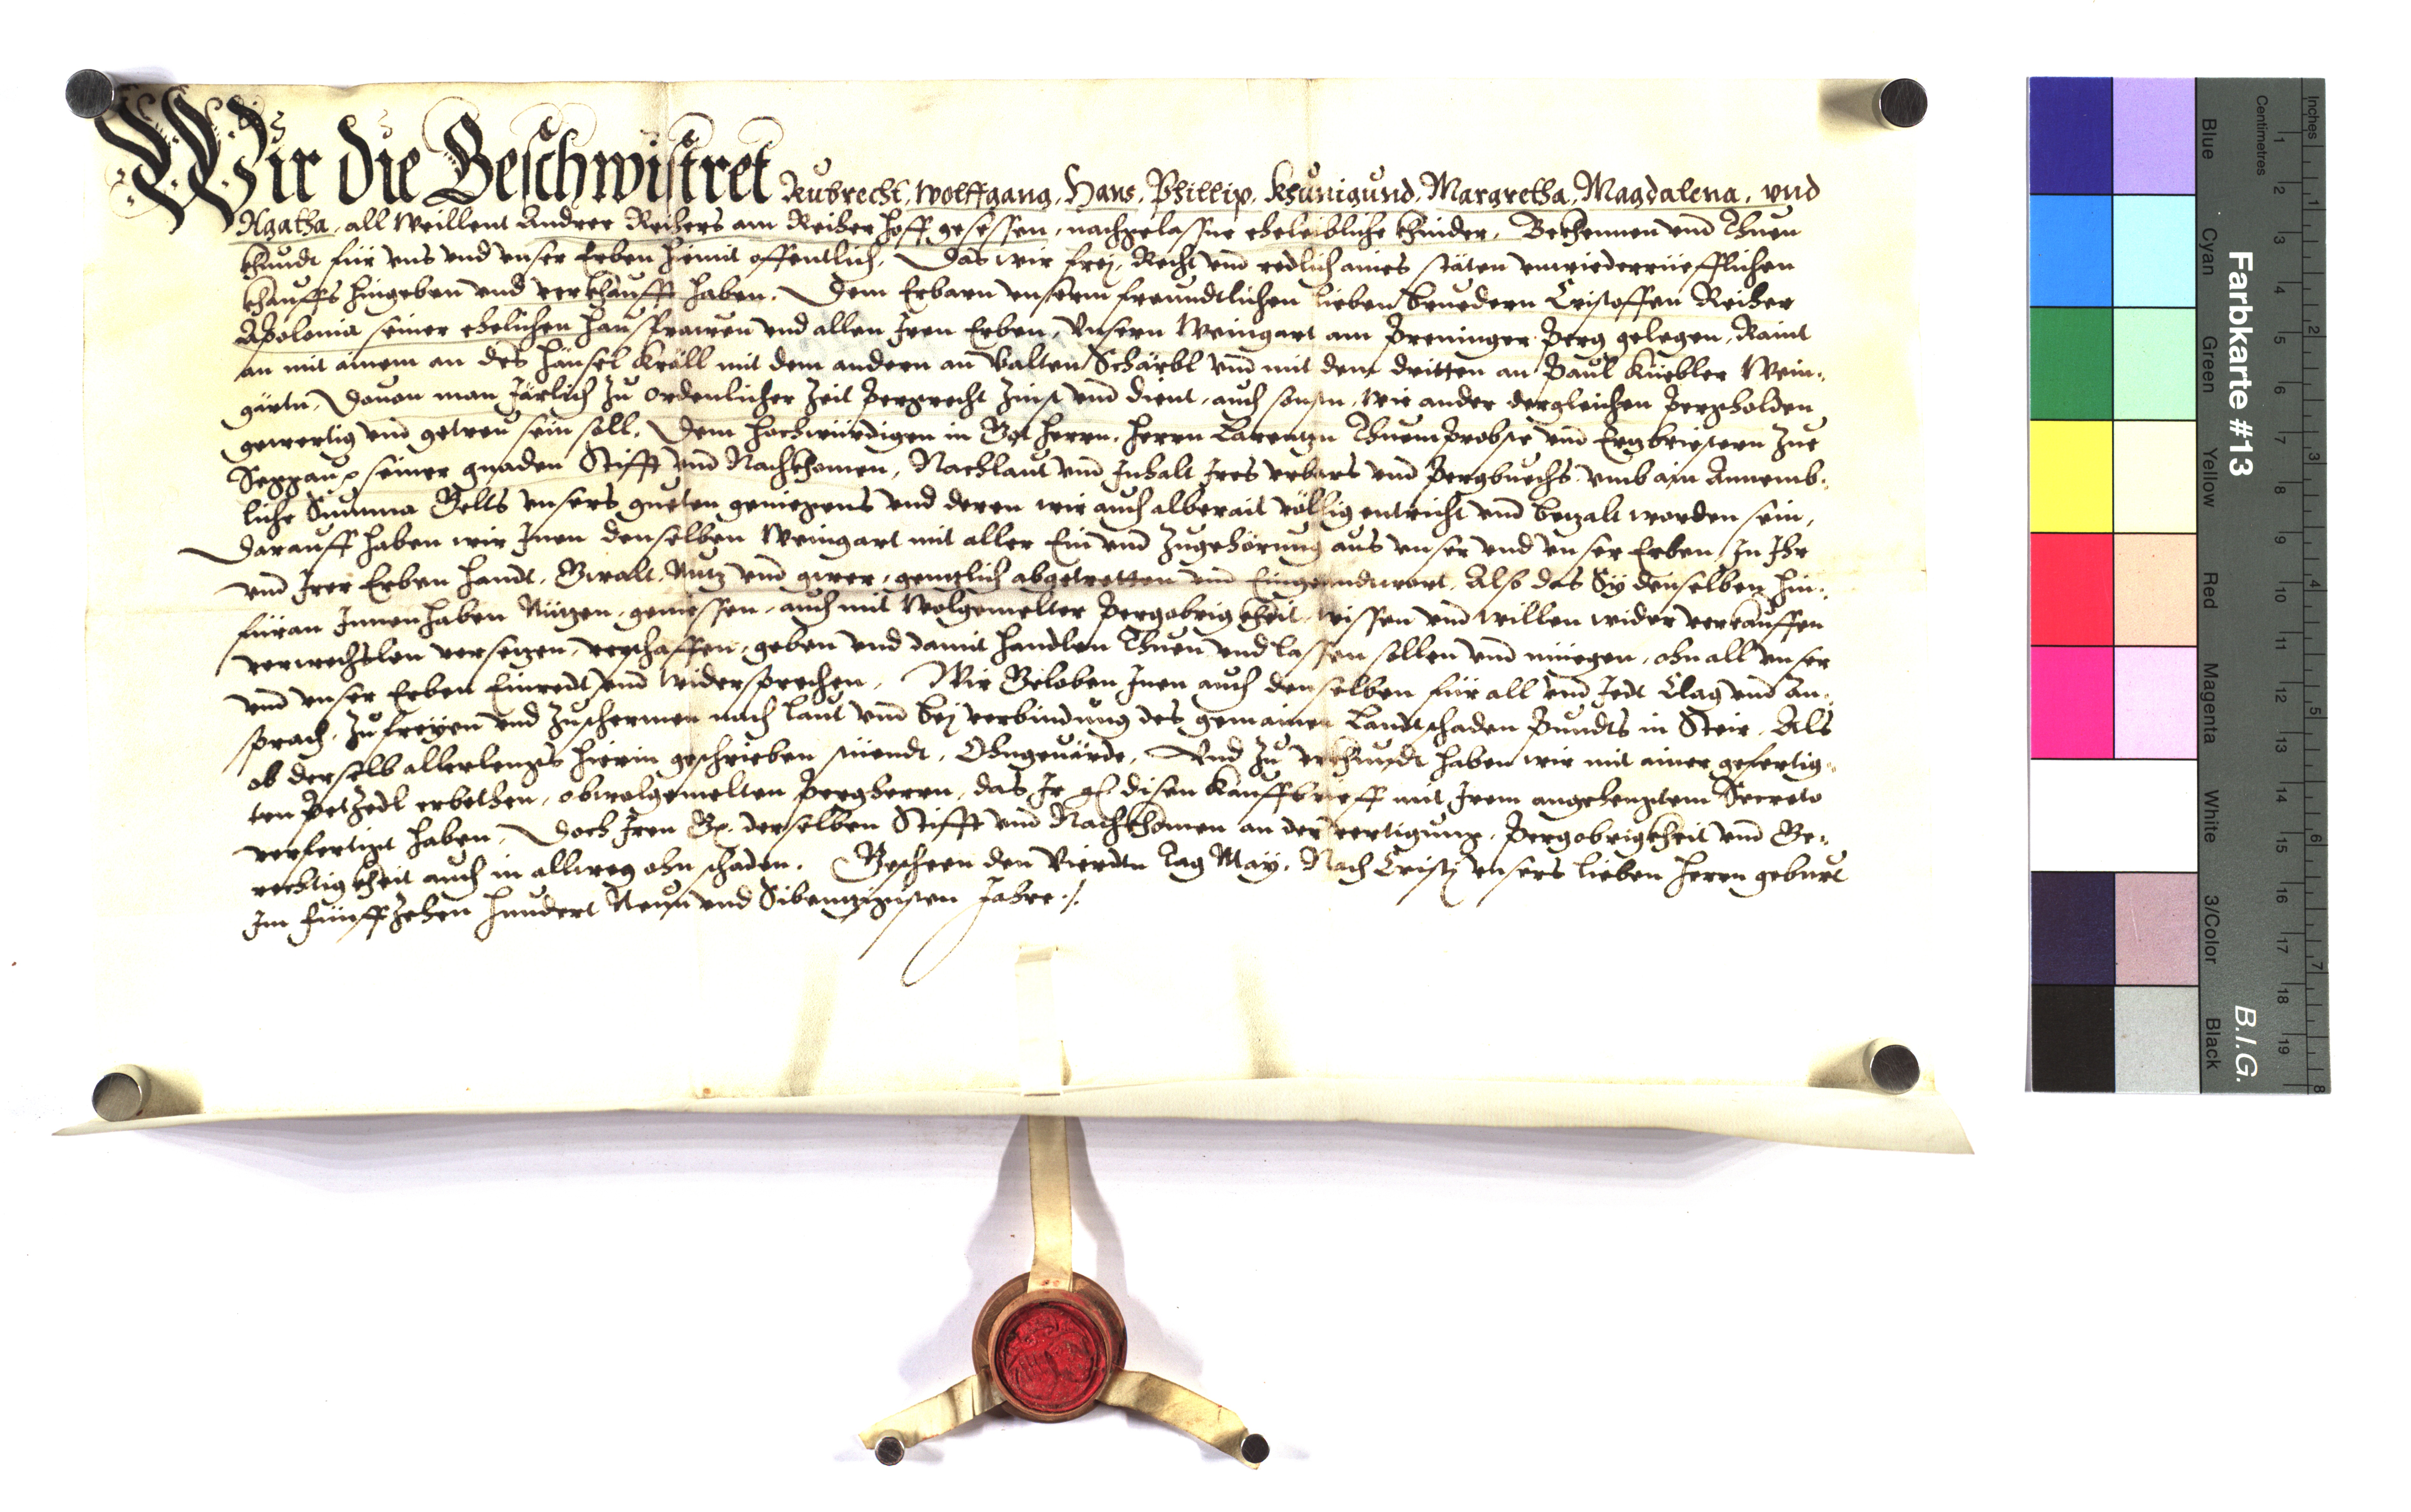 Wir die Geschwistret Rubrecht, Wolffgang, Hans, Phillip, Khunigund, Margretha, Magdalena, vnd
Agatha, all Weillent Andree Reihers am Reiherhoff gesessen, nachgelassne eheleibliche khinder, Bekhennen vnd Thuen
khundt für vns vnd vnser Erben hiemit offentlich, Das wir frej, Recht vnd redlich aines stäten vnwiderrüefflichen
khauffs hingeben vnd verkhaufft haben, Dem Erbarn vnserm freundtlichen lieben bruedern Cristoffen Reiher
Apolonia seiner ehelichen hausfrawen vnd allen Iren Erben, Vnsern Weingart am Preninger Perg gelegen, Raint
an mit ainem an des Hänsel Kräll mit dem andern an Valten Schärbl vnd mit dem dritten an Paul Küebler Wein:
gärtn, Dauon man Järlich zu ordenlicher Zeit Pergrecht Zinst vnd dient, auch sonsten, wie ander dergleichen Pergholden
gewertig vnd getreu sein soll, Dem hochwürdigen in Got herrn, herrn Larentzn Thuembrobste vnd Ertzbriestern zue
Seggau, seiner gnaden Stifft vnd Nachkhomen, Nachlaut vnd Inhalt Ires vrbars vnd Pergbuechs vmb ain Annemb:
liche Summa Gelts vnsers gueten geniegens vnd deren wir auch alberait völlig entricht vnd betzalt worden sein,
Darauff haben wir Inen denselben Weingart mit aller Ein vnd Zugehörung aus vnser vnd vnser Erben In Ihr
vnd Irer Erben handt, Gwalt, Nutz vnd gwer, gentzlich abgetretten vnd Eingeandtwort, Also das Sÿ denselben hin:
füran Innenhaben Nützen, geniessen, auch mit Wolgemelter Pergobrigkheit wissen vnd willen wider verkauffen
verwechslen versetzen, verschaffen, geben vnd damit handlen Thuen vnd lassen sollen vnd müegen, ohn all vnser
vnd vnser Erben Einredt vnd widersprechen, Wir Geloben Inen auch denselben für all vnd Jedt Clag vnd An:
sprach, Zu freÿen vnd Zuschermen nach laut vnd bej verbindung des gemainen Landtschaden Pundts in Steir, Als
ob derselb allerlengs hierin geschrieben stüendt, Ohngeuärde, Vnd zu vrkhundt haben wir mit ainer gefertig:
ten PetZedl erbethen, obwolgemelten Pergherrn, das Ir gl disen Kauffbrieff mit Irem angehengtem Secreto
verfertigt haben, Doch Iren G. derselben Stifft vnd Nachkhomen an der vertigung, Pergobrigkheit vnd Ge:
rechtigkheit auch in allweg ohn schaden. Geschechen den Vierdtn Tag Maÿ, Nach Cristj vnsers lieben herrn geburt
Im fünffzehen hundert Neun vnd Sibentzigisten Jahre ./.
Farbkarte #13
B.I.G.
Inches 1 2 3 4 5 6 7 8
Centimetres 1 2 3 4 5 6 7 8 9 10 11 12 13 14 15 16 17 18 19
Blue Cyan Green Yellow Red Magenta White 3/Color Black